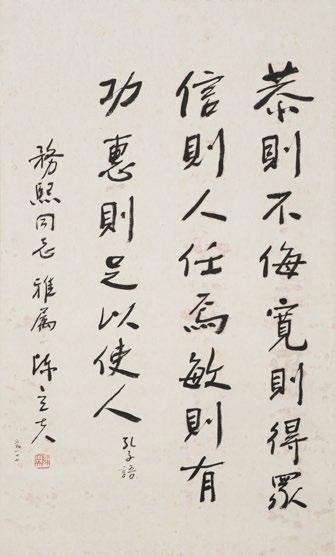 恭則不侮寬則得眾
信則人任焉敏則有
功惠則足以使人
孔子語
務熙同志 雅屬 陳立夫